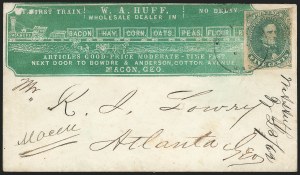 FIRST TRAIN. W. A. HUFF, NO DELAY
WHOLESALE DEALER IN
BACON HAY. CORN. OATS. PEAS. FLOUR
ARTICLES GOOD-PRICE MODERATE-TIME FAST
NEXT DOOR TO BOWDRE & ANDERSON, COTTON AVENUE
MACON, GEO.
Mr K. J. Lowry
Macon
Atlanta
Geo